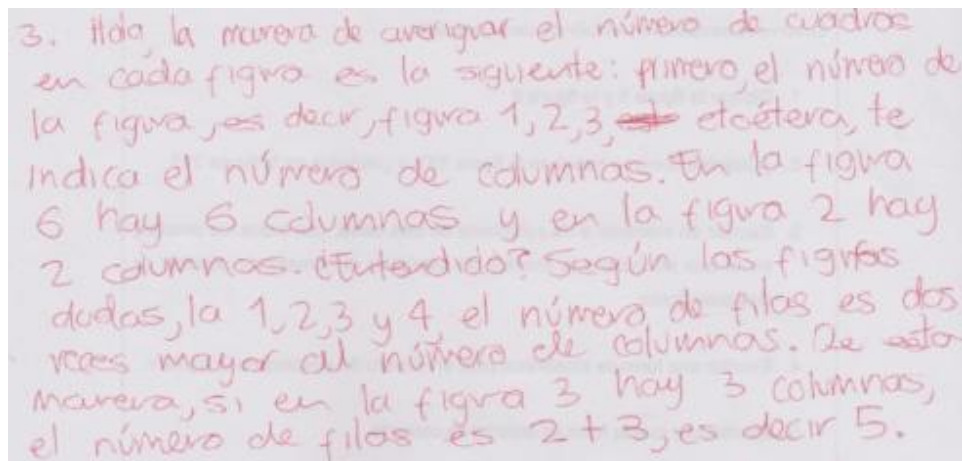 3. Hola, la manera de averiguar el número de cuadros
en cada figura es la siguiente: primero, el número de
la figura, es decir, figura 1, 2, 3, etcétera, te
indica el número de columnas. En la figura
6 hay 6 columnas y en la figura 2 hay
2 columnas. ¿Entendido? Según las figuras
dadas, la 1, 2, 3 y 4, el número de filas es dos
veces mayor al número de columnas. De esta
manera, si en la figura 3 hay 3 columnas,
el número de filas es 2 + 3, es decir 5.